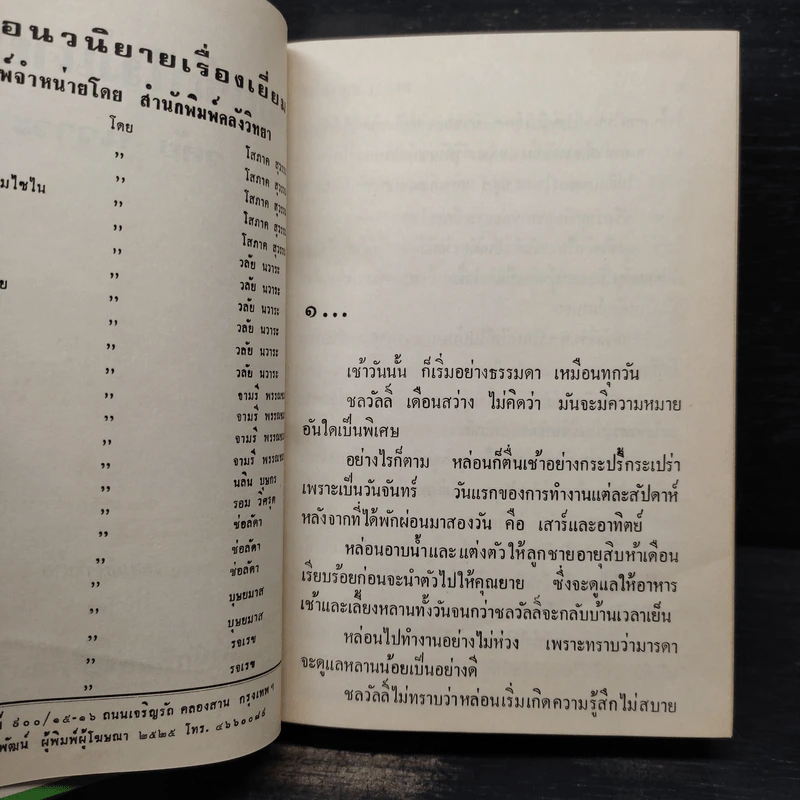 อนวนิยายเรื่องเยี่ยม
พ์จำหน่ายโดย สำนักพิมพ์คลังวิทยา
โดย
,, โสภาค สุวรรณ
มไซไน ,, โสภาค สุวรรณ
,, โสภาค สุวรรณ
,, โสภาค สุวรรณ
,, โสภาค สุวรรณ
,, วลัย นวาระ
ย ,, วลัย นวาระ
,, วลัย นวาระ
,, วลัย นวาระ
,, วลัย นวาระ
,, วลัย นวาระ
,, จามรี พรรณชมพู
,, จามรี พรรณชมพู
,, จามรี พรรณชมพู
,, จามรี พรรณชมพู
,, นลิน บุษกร
,, รอม วิศรุต
,, ช่อลัดา
,, ช่อลัดา
,, ช่อลัดา
,, บุษยมาส
,, บุษยมาส
,, รจเรข
,, รจเรข
ที่ ๙๐๐/๑๕-๑๖ ถนนเจริญรัถ คลองสาน กรุงเทพฯ
พัฒน์ ผู้พิมพ์ผู้โฆษณา ๒๕๒๕ โทร. ๔๖๖๐๐๘๙
๑...
เช้าวันนั้น ก็เริ่มอย่างธรรมดา เหมือนทุกวัน
ชลวัลลิ์ เดือนสว่าง ไม่คิดว่า มันจะมีความหมาย
อันใดเป็นพิเศษ
อย่างไรก็ตาม หล่อนก็ตื่นเช้าอย่างกระปรี้กระเปร่า
เพราะเป็นวันจันทร์ วันแรกของการทำงานแต่ละสัปดาห์
หลังจากที่ได้พักผ่อนมาสองวัน คือ เสาร์และอาทิตย์
หล่อนอาบน้ำและแต่งตัวให้ลูกชายอายุสิบห้าเดือน
เรียบร้อยก่อนจะนำตัวไปให้คุณยาย ซึ่งจะดูแลให้อาหาร
เช้าและเลี้ยงหลานทั้งวันจนกว่าชลวัลลิ์จะกลับบ้านเวลาเย็น
หล่อนไปทำงานอย่างไม่ห่วง เพราะทราบว่ามารดา
จะดูแลหลานน้อยเป็นอย่างดี
ชลวัลลิ์ไม่ทราบว่าหล่อนเริ่มเกิดความรู้สึกไม่สบาย